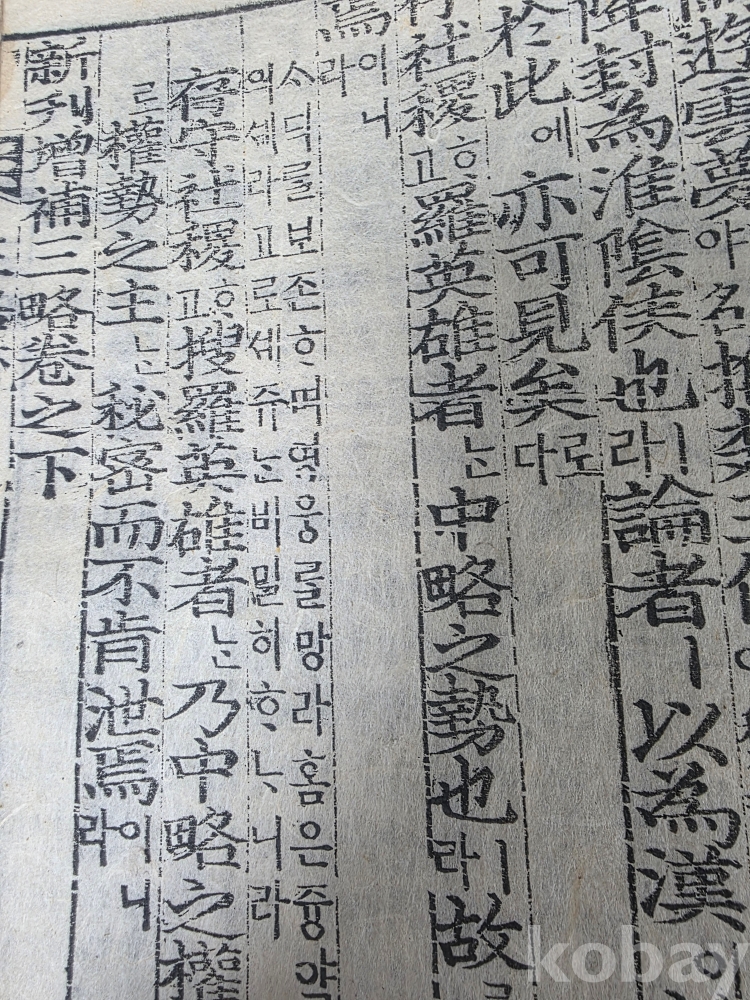 遊雲夢야 名
降封為淮陰侯也ㅣ라 論者ㅣ 以為漢
於此에 亦可見矣로다
社稷ᄒᆞ고 羅英雄者ᄂᆞᆫ 中略之勢也ㅣ라 故
焉이니라
딕를보존ᄒᆞ며영웅를망라홈은즁약
의셰라고로셰쥬ᄂᆞᆫ비밀히ᄒᆞᄂᆞ니라
存守社稷ᄒᆞ고 搜羅英雄者ᄂᆞᆫ 乃中略之權
로 權勢之主ᄂᆞᆫ 秘密而不肯泄焉이니라
新刊增補三略卷之下
kobay